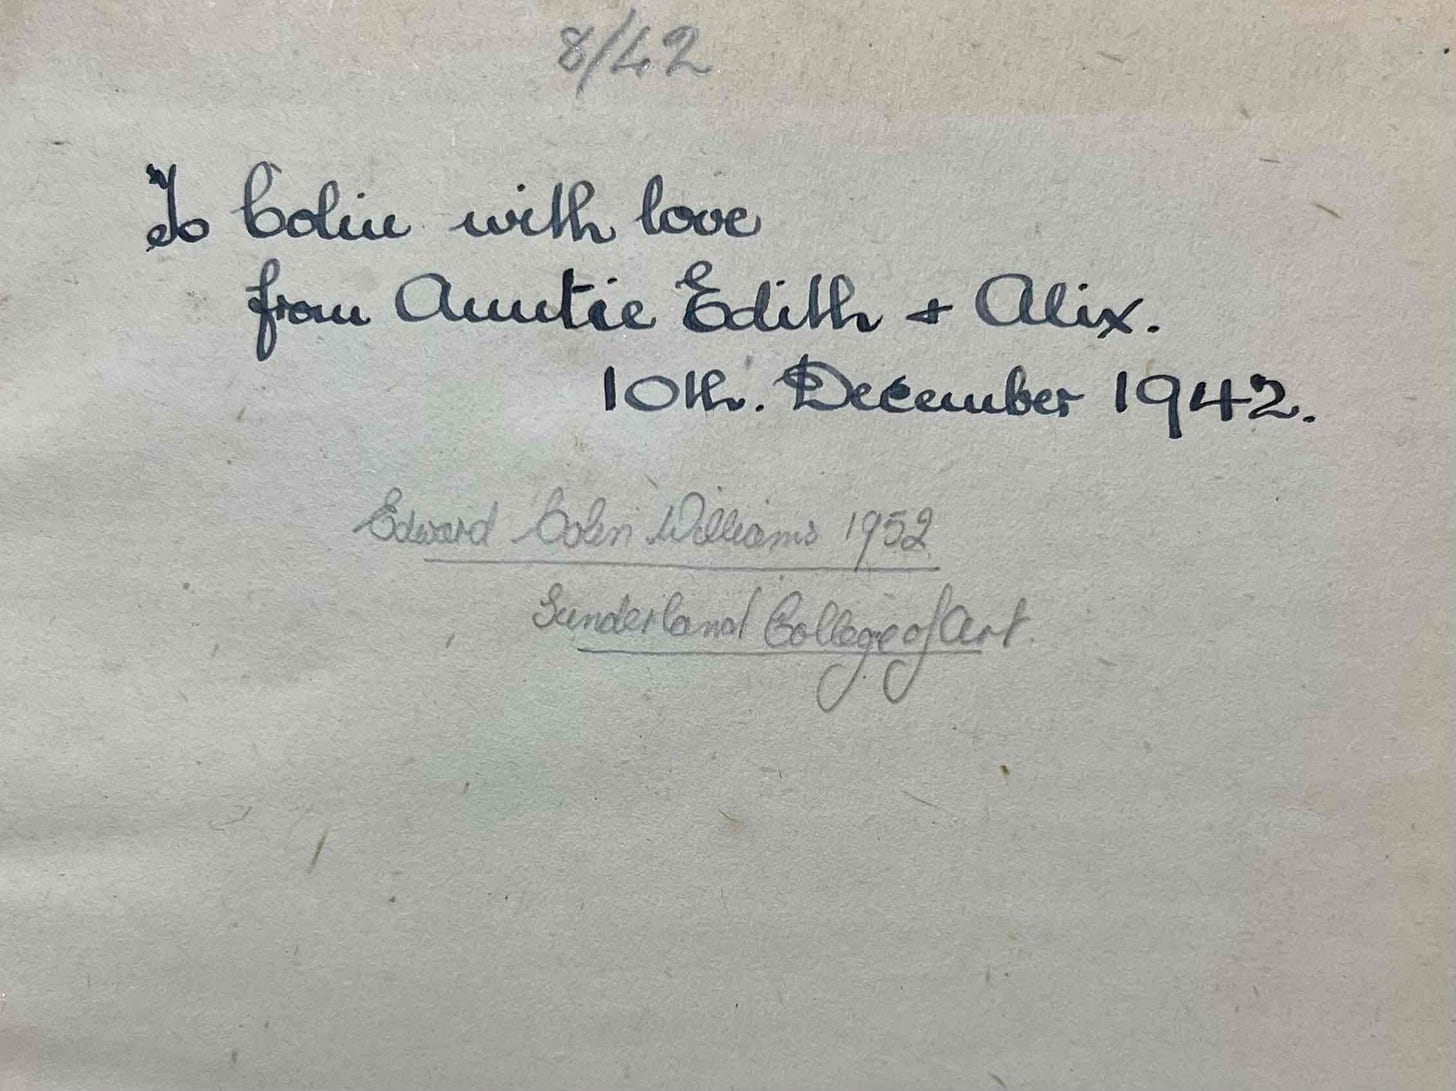 8/42
To Colin with love
from Auntie Edith + Alix.
10th. December 1942.
Edward Colin Williams 1952
Sunderland College of Art.